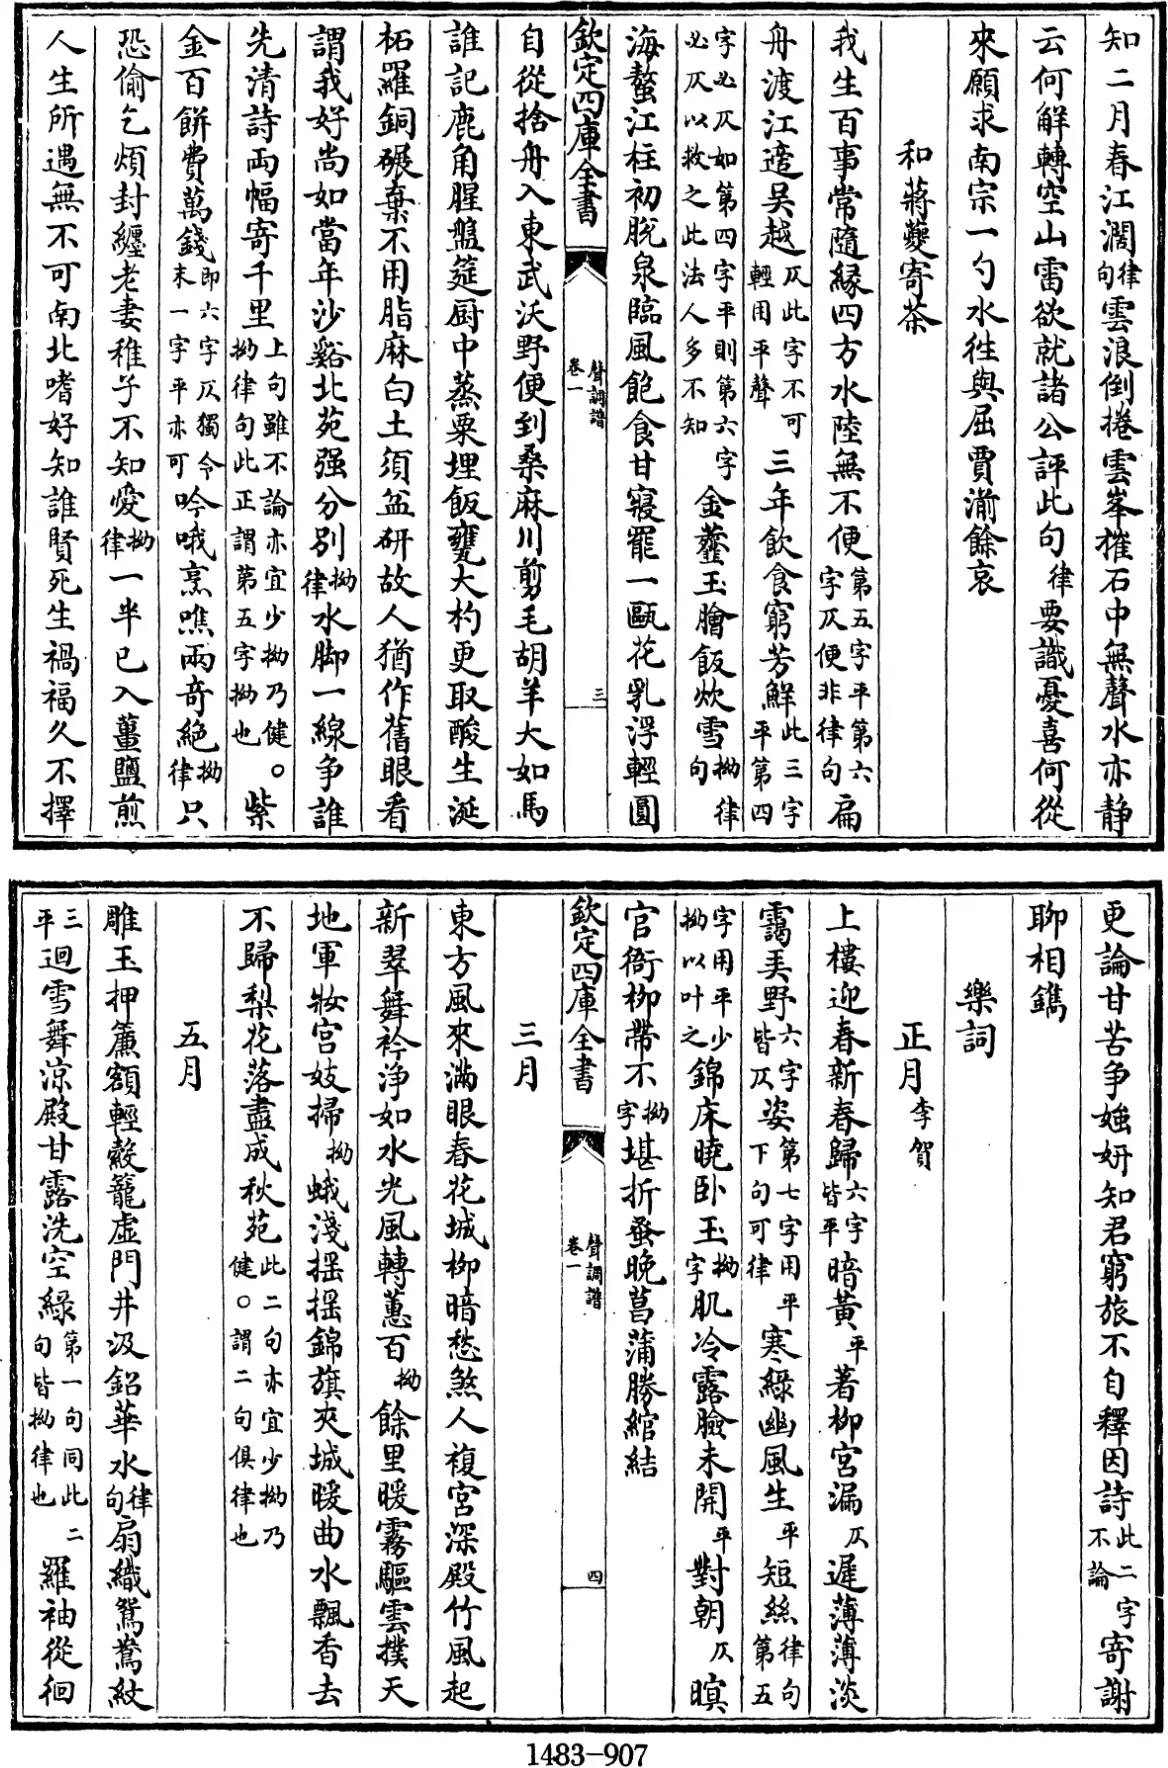 知二月春江濶律句雲浪倒捲雲峯摧石中無聲水亦靜
云何解轉空山雷欲就諸公評此句律要識憂喜何從
來願求南宗一勺水往與屈賈湔餘哀
和蔣夔寄茶
我生百事常隨緣四方水陸無不便第五字平第六字仄便非律句扁
舟渡江適吳越仄此字不可輕用平聲三年飲食窮芳鮮此三字平第四
字必仄如第四字平則第六字必仄以救之此法人多不知金虀玉膾飯炊雪拗律句
海螯江柱初脫泉臨風飽食甘寢罷一甌花乳浮輕圓
欽定四庫全書 聲調譜卷一 三
自從捨舟入東武沃野便到桑麻川剪毛胡羊大如馬
誰記鹿角腥盤筵厨中蒸粟埋飯甕大杓更取酸生涎
柘羅銅碾棄不用脂麻白土須盆研故人猶作舊眼看
謂我好尚如當年沙谿北苑强分别拗律水脚一線争誰
先清詩兩幅寄千里上句雖不論亦宜少拗乃健。拗律句此正謂第五字拗也紫
金百餅費萬錢即六字仄獨令末一字平亦可吟哦烹噍兩奇絶拗律只
恐偷乞煩封纏老妻稚子不知愛拗律一半已入薑鹽煎
人生所遇無不可南北嗜好知誰賢死生禍福久不擇
更論甘苦争媸妍知君窮旅不自釋因詩此二字不論寄謝
聊相鐫
樂詞
正月李賀
上樓迎春新春歸六字皆平暗黄平著柳宮漏仄遲薄薄淡
靄弄野六字皆仄姿第七字用平下句可律寒綠幽風生平短絲律句第五
字用平少拗以叶之錦床曉臥玉拗字肌冷露臉未開平對朝仄暝
官衙柳帶不拗字堪折蚤晚菖蒲勝綰結
欽定四庫全書 聲調譜卷一 四
三月
東方風來滿眼春花城柳暗愁煞人複宮深殿竹風起
新翠舞衿淨如水光風轉蕙百拗餘里暖霧驅雲撲天
地軍妝宮妓掃拗蛾淺搖搖錦旗夾城暖曲水飄香去
不歸梨花落盡成秋苑此二句亦宜少拗乃健。謂二句俱律也
五月
雕玉押簾額輕縠籠虛門井汲鉛華水律句扇織鴛鴦紋
三平迴雪舞涼殿甘露洗空綠第一句同此二句皆拗律也羅袖從徊
1483-907